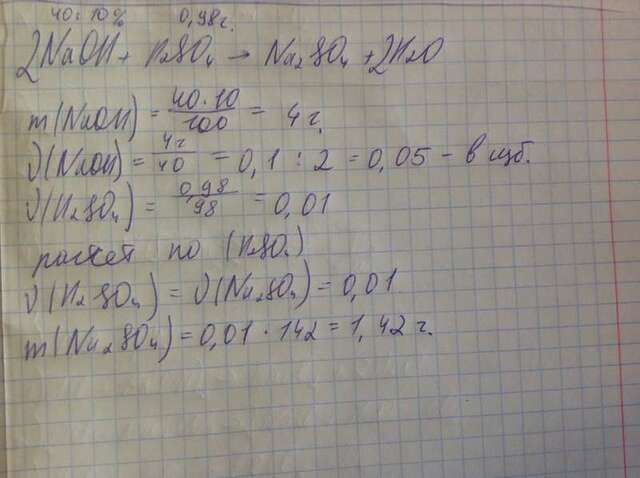 40; 10% 0,98г.
2NaOH + H₂SO₄ → Na₂SO₄ + 2H₂O
m(NaOH) = 40·10/100 = 4г.
ν(NaOH) = 4г/40 = 0,1 : 2 = 0,05 – в изб.
ν(H₂SO₄) = 0,98/98 = 0,01
расчет по (H₂SO₄)
ν(H₂SO₄) = ν(Na₂SO₄) = 0,01
m(Na₂SO₄) = 0,01 · 142 = 1,42 г.